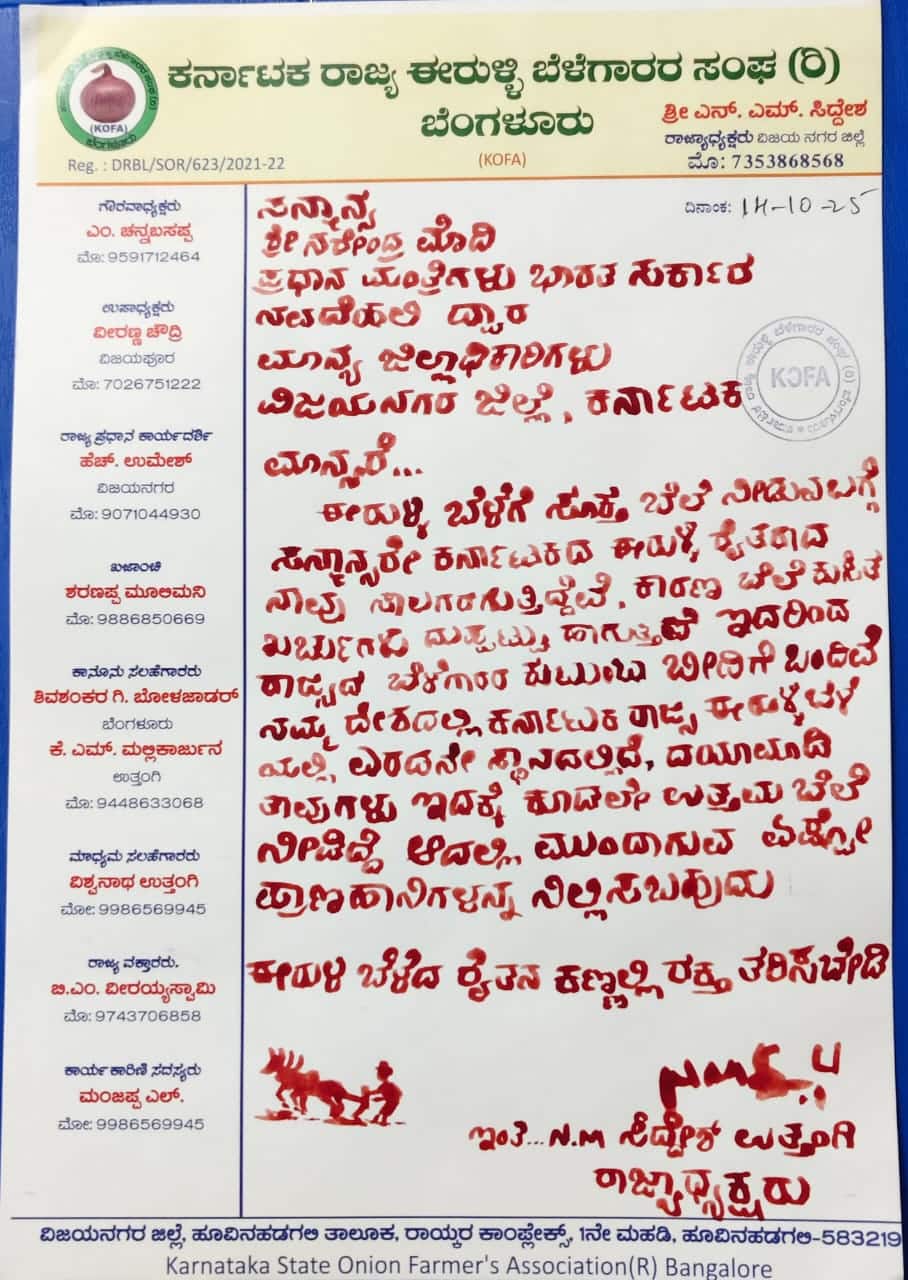 ಕರ್ನಾಟಕ ರಾಜ್ಯ ಈರುಳ್ಳಿ ಬೆಳೆಗಾರರ ಸಂಘ (ರಿ)
ಬೆಂಗಳೂರು
(KOFA)
ಶ್ರೀ ಎನ್. ಎಮ್. ಸಿದ್ದೇಶ
ರಾಜ್ಯಾಧ್ಯಕ್ಷರು ವಿಜಯ ನಗರ ಜಿಲ್ಲೆ
ಮೊ: 7353868568
(KOFA)
ಬೆಂಗಳೂರು
Reg. : DRBL/SOR/623/2021-22
ಗೌರವಾಧ್ಯಕ್ಷರು
ಎಂ. ಚನ್ನಬಸಪ್ಪ
ಮೊ: 9591712464
ಉಪಾಧ್ಯಕ್ಷರು
ವೀರಣ್ಣ ಚೌದ್ರಿ
ವಿಜಯಪೂರ
ಮೊ: 7026751222
ರಾಜ್ಯ ಪ್ರಧಾನ ಕಾರ್ಯದರ್ಶಿ
ಹೆಚ್. ಉಮೇಶ್
ವಿಜಯನಗರ
ಮೊ: 9071044930
ಖಜಾಂಚಿ
ಶರಣಪ್ಪ ಮೂಲಿಮನಿ
ಮೊ: 9886850669
ಕಾನೂನು ಸಲಹೆಗಾರರು
ಶಿವಶಂಕರ ಗಿ. ಬೋಳಜಾಡರ್
ಬೆಂಗಳೂರು
ಕೆ. ಎಮ್. ಮಲ್ಲಿಕಾರ್ಜುನ
ಉತ್ತಂಗಿ
ಮೊ: 9448633068
ಮಾಧ್ಯಮ ಸಲಹೆಗಾರರು
ವಿಶ್ವನಾಥ ಉತ್ತಂಗಿ
ಮೋ: 9986569945
ರಾಜ್ಯ ವಕ್ತಾರರು.
ಬಿ.ಎಂ. ವೀರಯ್ಯಸ್ವಾಮಿ
ಮೊ: 9743706858
ಕಾರ್ಯಕಾರಿಣಿ ಸದಸ್ಯರು
ಮಂಜಪ್ಪ ಎಲ್.
ಮೋ: 9986569945
ದಿನಾಂಕ: 14-10-25
ಸನ್ಮಾನ್ಯ
ಶ್ರೀ ನರೇಂದ್ರ ಮೋದಿ
ಪ್ರಧಾನ ಮಂತ್ರಿಗಳು ಭಾರತ ಸರ್ಕಾರ
ನವದೆಹಲಿ ದ್ವಾರ
ಮಾನ್ಯ ಜಿಲ್ಲಾಧಿಕಾರಿಗಳು
ವಿಜಯನಗರ ಜಿಲ್ಲೆ, ಕರ್ನಾಟಕ
KOFA
ಮಾನ್ಯರೆ...
ಈರುಳ್ಳಿ ಬೆಳೆಗೆ ಸೂಕ್ತ ಬೆಲೆ ನೀಡುವ ಬಗ್ಗೆ
ಸನ್ಮಾನ್ಯರೇ ಕರ್ನಾಟಕದ ಈರುಳ್ಳಿ ರೈತರಾದ
ನಾವು ಸಾಲಗಾರಗುತ್ತಿದ್ದೆವೆ, ಕಾರಣ ಬೆಲೆ ಕುಸಿತ
ಖರ್ಚುಗಳು ದುಪ್ಪಟ್ಟು ಹಾಗುತ್ತಣೆ ಇದರಿಂದ
ರಾಜ್ಯದ ಬೆಳೆಗಾರರ ಕುಟುಂಬ ಬೀದಿಗೆ ಬಂದಿವೆ
ನಮ್ಮ ದೇಶದಲ್ಲಿ ಕರ್ನಾಟಕ ರಾಜ್ಯ ಈರುಳ್ಳಿ ಬೆಳೆ
ಯಲ್ಲಿ ಎರಡನೇ ಸ್ಥಾನದಲ್ಲಿದೆ, ದಯಾಮಾಡಿ
ತಾವುಗಳು ಇದಕ್ಕೆ ಕೂಡಲೇ ಉತ್ತಮ ಬೆಲೆ
ನೀಡಿದ್ದೆ ಆದಲ್ಲಿ ಮುಂದಾಗುವ ಏಷ್ಟೋ
ಪ್ರಾಣಹಾನಿಗಳನ್ನ ನಿಲ್ಲಿಸಬಹುದು
ಈರುಳಿ ಬೆಳೆದ ರೈತನ ಕಣ್ಣಲ್ಲಿ ರಕ್ತ ತರಿಸಬೇಡಿ
ಇಂತಿ... N.M ಸಿದ್ದೇಶ್ ಉತ್ತಂಗಿ
ರಾಜ್ಯಾಧ್ಯಕ್ಷರು
ವಿಜಯನಗರ ಜಿಲ್ಲೆ, ಹೂವಿನಹಡಗಲಿ ತಾಲೂಕ, ರಾಯ್ಕರ ಕಾಂಪ್ಲೇಕ್ಸ್, 1ನೇ ಮಹಡಿ, ಹೂವಿನಹಡಗಲಿ-583219
Karnataka State Onion Farmer's Association(R) Bangalore